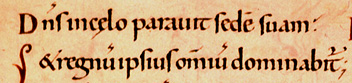 Dn̄s incęlo parauit sedē suam:
& regnū ipsius omīu dominabit᷑;